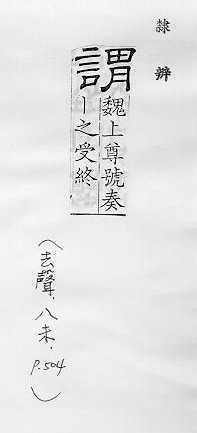 隸辨
謂
魏上尊號奏
｜之受終
(去聲．八未．P.504)